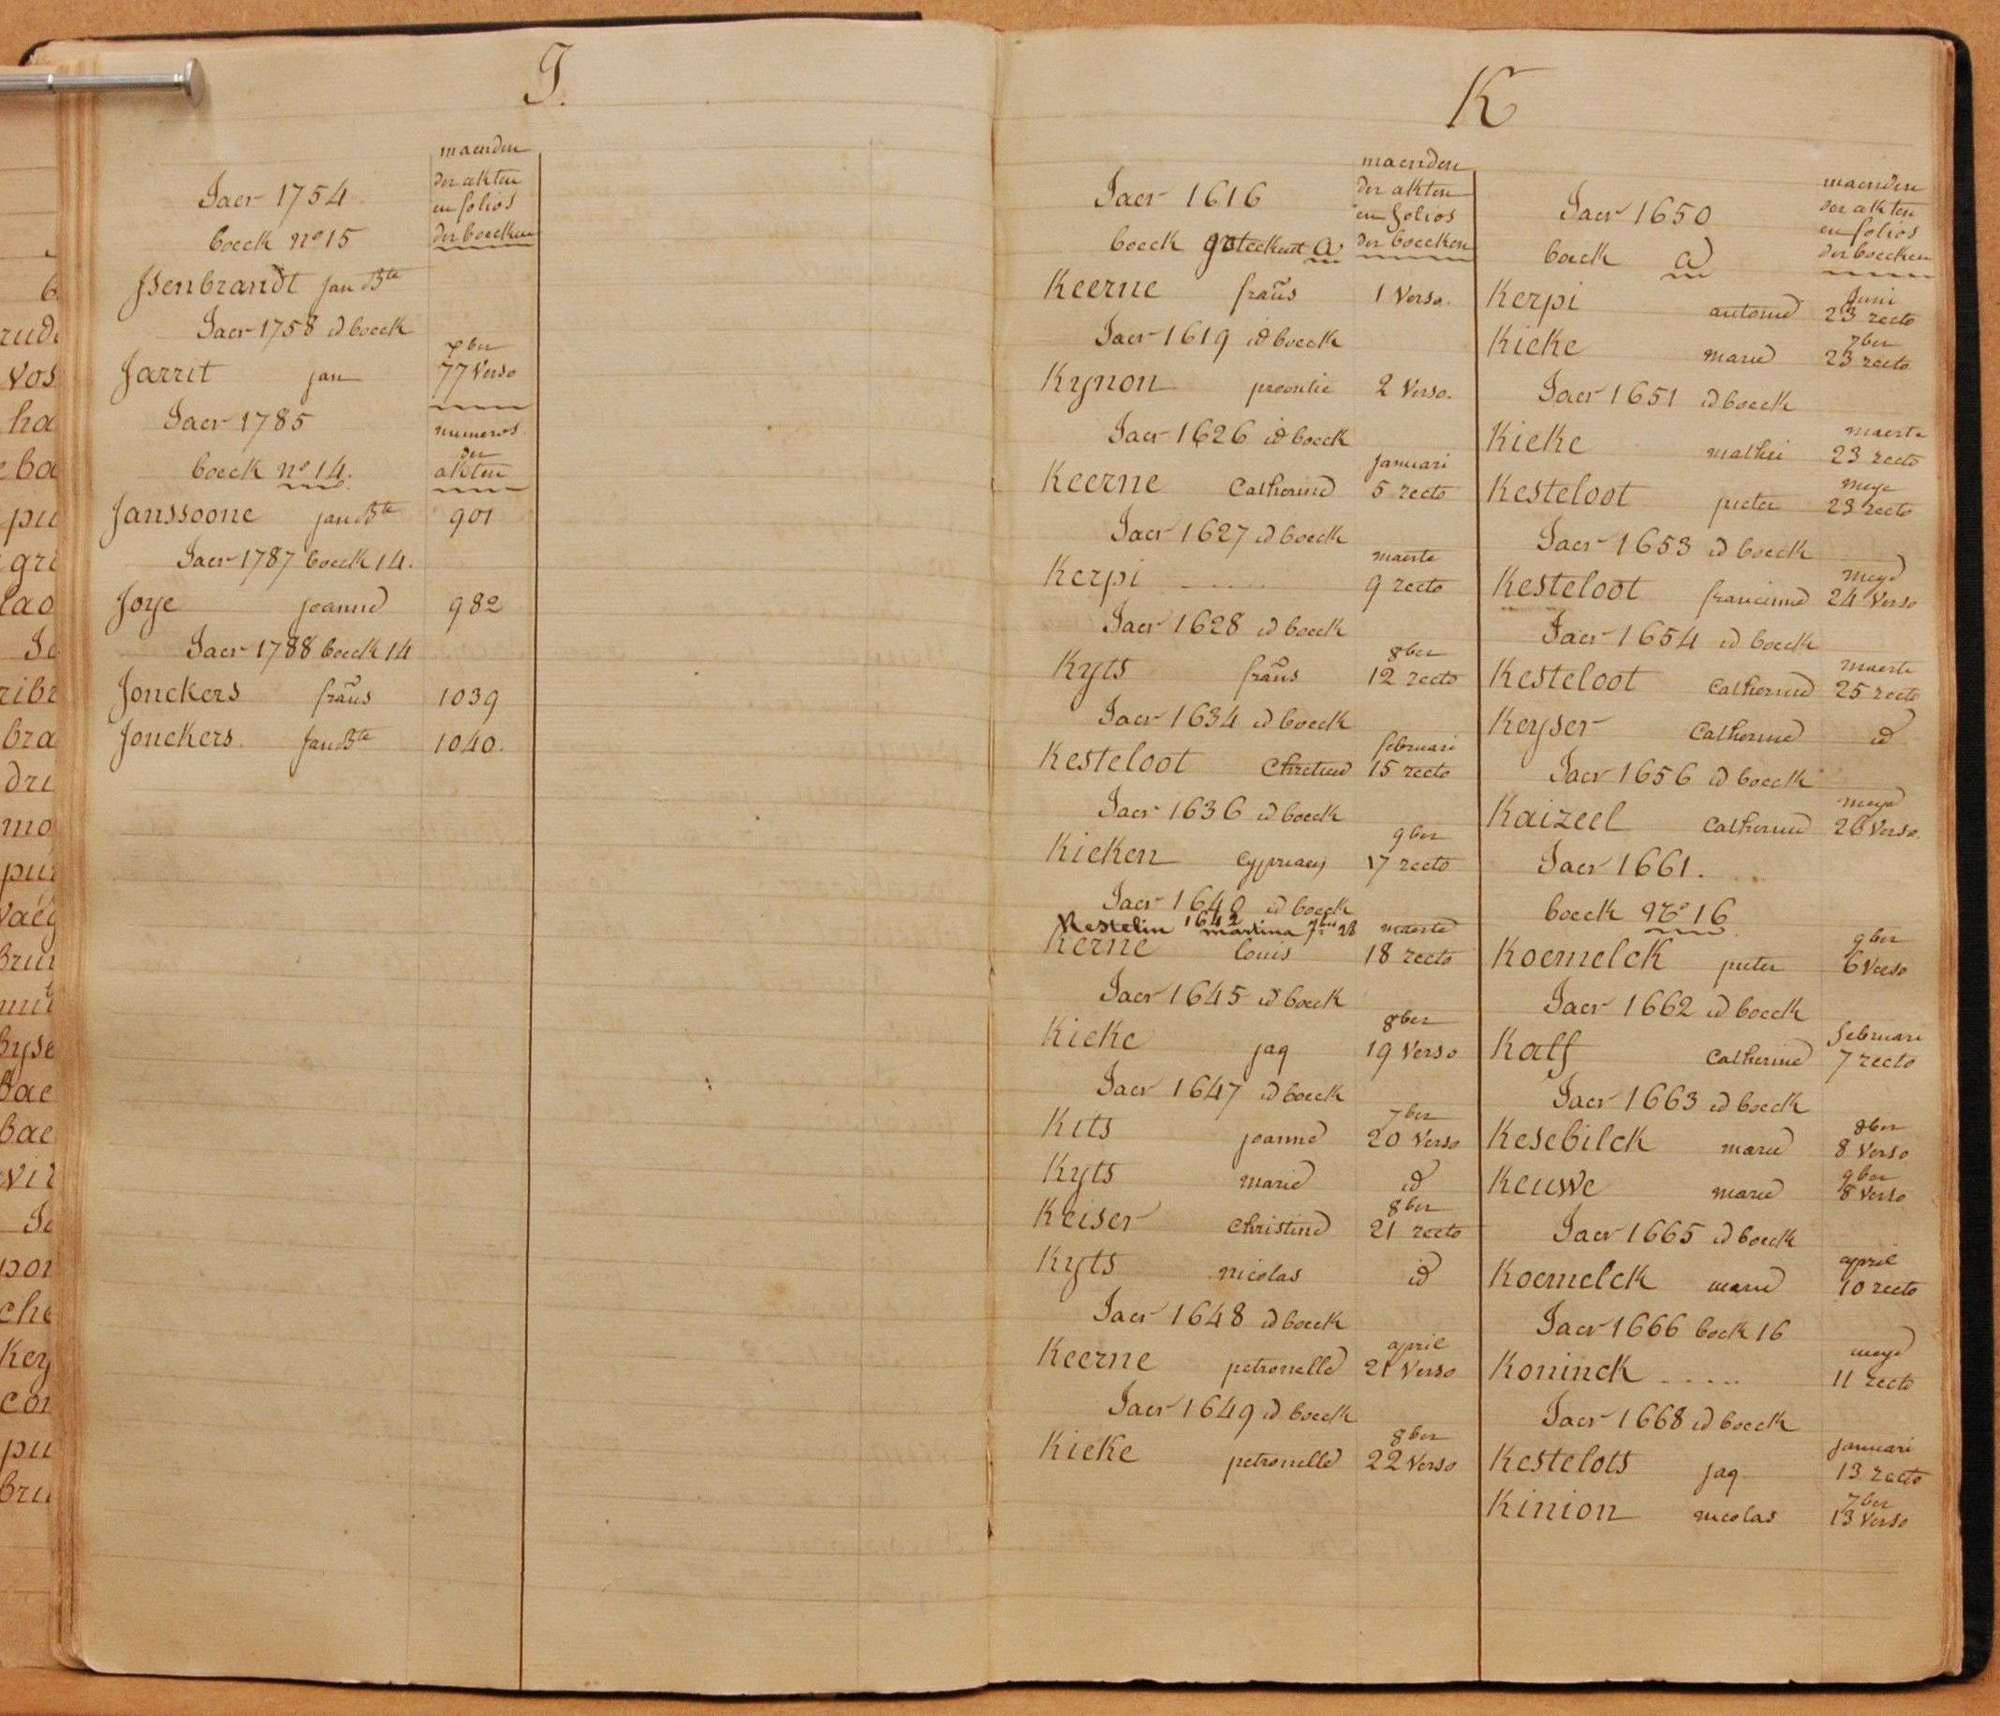 J.
maenden
der akten
en folios
der boecken
Jaer 1754
boeck no 15
Jsenbrandt jan Bte
Jaer 1758 id boeck
7ber
Jarrit jan 77 Verso
Jaer 1785
boeck no 14.
numeros
der
akten
Janssoone jan Bte 901
Jaer 1787 boeck 14.
Joye joanne 982
Jaer 1788 boeck 14
Jonckers frans 1039
Jonckers Jan Bte 1040.
K
maenden
der akten
en folios
der boecken
Jaer 1616
boeck geteekent A
Keerne frans 1 Verso.
Jaer 1619 id boeck
Kynon 2 Verso.
Jaer 1626 id boeck
Januari
Keerne Catherine 5 recto
Jaer 1627 id boeck
maerte
Kerpi ...... 9 recto
Jaer 1628 id boeck
8ber
Kyts frans 12 recto
Jaer 1634 id boeck
februari
Kesteloot Chretien 15 recto
Jaer 1636 id boeck
9ber
Kieken Cypriaen 17 recto
Jaer 1640 id boeck
Kestelin 1642 martina 7ber 18
maerte
Kerne louis 18 recto
Jaer 1645 id boeck
8ber
Kieke jaq 19 Verso
Jaer 1647 id boeck
7ber
Kits joanne 20 Verso
Kyts marie id
8ber
Keiser Christine 21 recto
Kyts nicolas id
Jaer 1648 id boeck
april
Keerne petronelle 21 Verso
Jaer 1649 id boeck
8ber
Kieke petronelle 22 Verso
maenden
der akten
en folios
der boecken
Jaer 1650
boeck A
Juni
Kerpi antoine 23 recto
7ber
Kieke marie 23 recto
Jaer 1651 id boeck
maerte
Kieke mathii 23 recto
meye
Kesteloot pieter 23 recto
Jaer 1653 id boeck
meye
Kesteloot francinne 24 Verso
Jaer 1654 id boeck
maerte
Kesteloot Catherine 25 recto
Keyser Catherine id
Jaer 1656 id boeck
meye
Kaizeel Catherine 26 Verso.
Jaer 1661.
boeck No 16
9ber
Koemelck pieter 6 Verso
Jaer 1662 id boeck
februari
Kalf Catherine 7 recto
Jaer 1663 id boeck
8ber
Kesebilck marie 8 Verso
9ber
Keuwe marie 8 Verso
Jaer 1665 id boeck
april
Koemelck marie 10 recto
Jaer 1666 boek 16
meye
Koninck ..... 11 recto
Jaer 1668 id boeck
Januari
Kestelots jaq 13 recto
7ber
Kinion nicolas 13 Verso